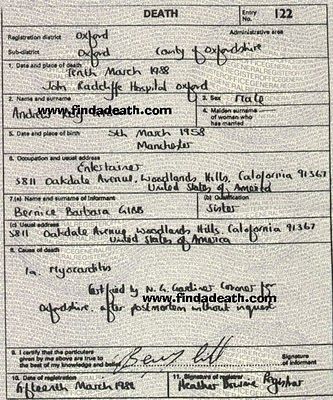 DEATH
Entry No. 122
Registration district Oxford
Administrative area
Sub-district Oxford
County of Oxfordshire
1. Date and place of death
Tenth March 1988
John Radcliffe Hospital Oxford
2. Name and surname
3. Sex Male
www.findadeath.com
Andrew
4. Maiden surname of woman who has married
5. Date and place of birth
5th March 1958
Manchester
6. Occupation and usual address
Entertainer
5811 Oakdale Avenue, Woodlands Hills, California 91367
United States of America
7.(a) Name and surname of informant
(b) Qualification
Bernice Barbara GIBB
Sister
(c) Usual address
5811 Oakdale Avenue, Woodlands Hills, California 91367
United States of America
8. Cause of death
1a. Myocarditis
Certified by N.G. Gardiner Coroner for
www.findadeath.com
Oxfordshire after postmortem without inquest
9. I certify that the particulars given by me above are true to the best of my knowledge and belief
Signature of informant
10. Date of registration
Fifteenth March 1988
11. Signature of registrar
Heather
Registrar